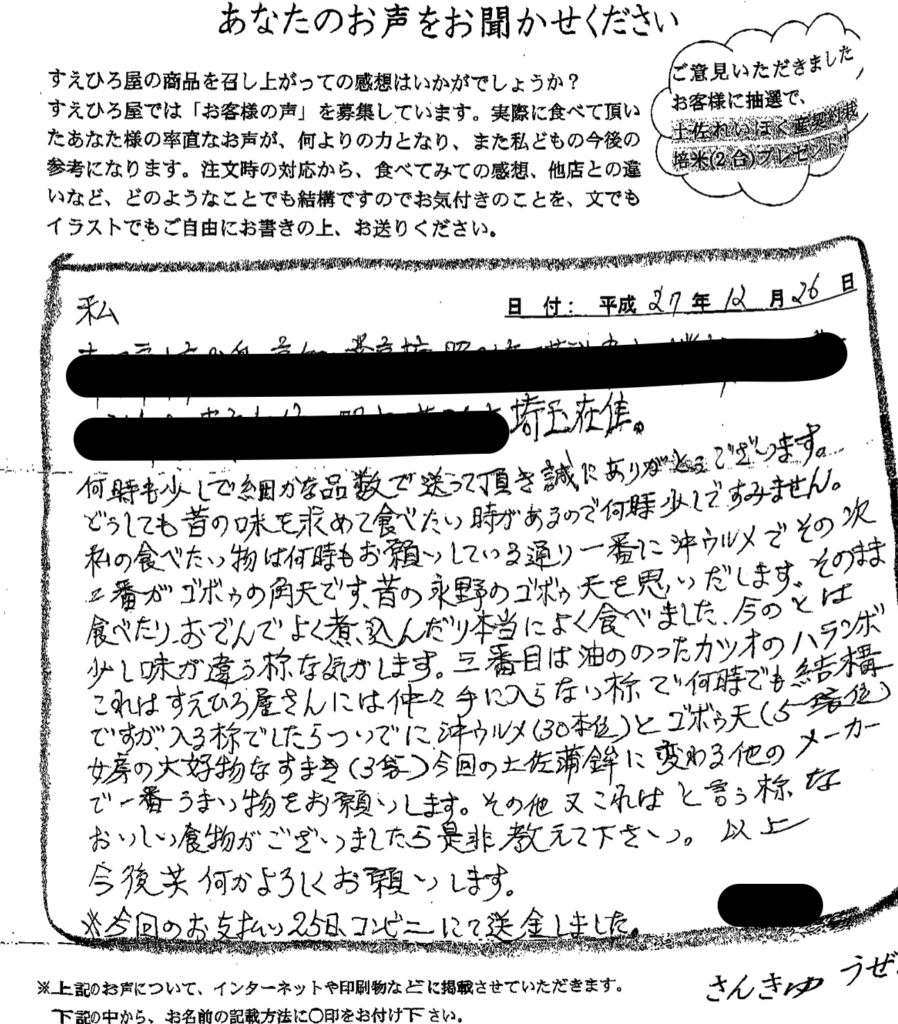 あなたのお声をお聞かせください
すえひろ屋の商品を召し上がっての感想はいかがでしょうか？
すえひろ屋では「お客様の声」を募集しています。実際に食べて頂い
たあなた様の率直なお声が、何よりの力となり、また私どもの今後の
参考になります。注文時の対応から、食べてみての感想、他店との違
いなど、どのようなことでも結構ですのでお気付きのことを、文でも
イラストでもご自由にお書きの上、お送りください。
ご意見いただきました
お客様に抽選で、
土佐れいほく産契約栽
培米(2合)プレゼント!
日 付： 平成 27 年 12 月 26 日
私
埼玉在住。
何時も少しで細かな品数で送って頂き誠にありがとうございます。
どうしても昔の味を求めて食べたい時があるので何時少しですみません。
私の食べたい物は何時もお願いしている通り一番に沖ウルメでその次
二番がゴボウの角天です、昔の永野のゴボウ天を思いだします。そのまま
食べたり、おでんでよく煮込んだり本当によく食べました、今のとは
少し味が違う様な気がします。三番目は油ののったカツオのハランボ
これはすえひろ屋さんには仲々手に入らない様で何時でも結構
ですが、入る様でしたらついでに、沖ウルメ(30本位)とゴボウ天(5
女房の大好物なすまき(3袋)今回の土佐蒲鉾に変わる他のメーカー
で一番うまい物をお願いします。その他又これはと言う様な
おいしい食物がございましたら是非教えて下さい。 以上
今後共何かよろしくお願いします。
※今回のお支払い25日、コンビニにて送金しました。
※上記のお声について、インターネットや印刷物などに掲載させていただきます。
下記の中から、お名前の記載方法に○印をお付け下さい。
さんきゅ うぜ